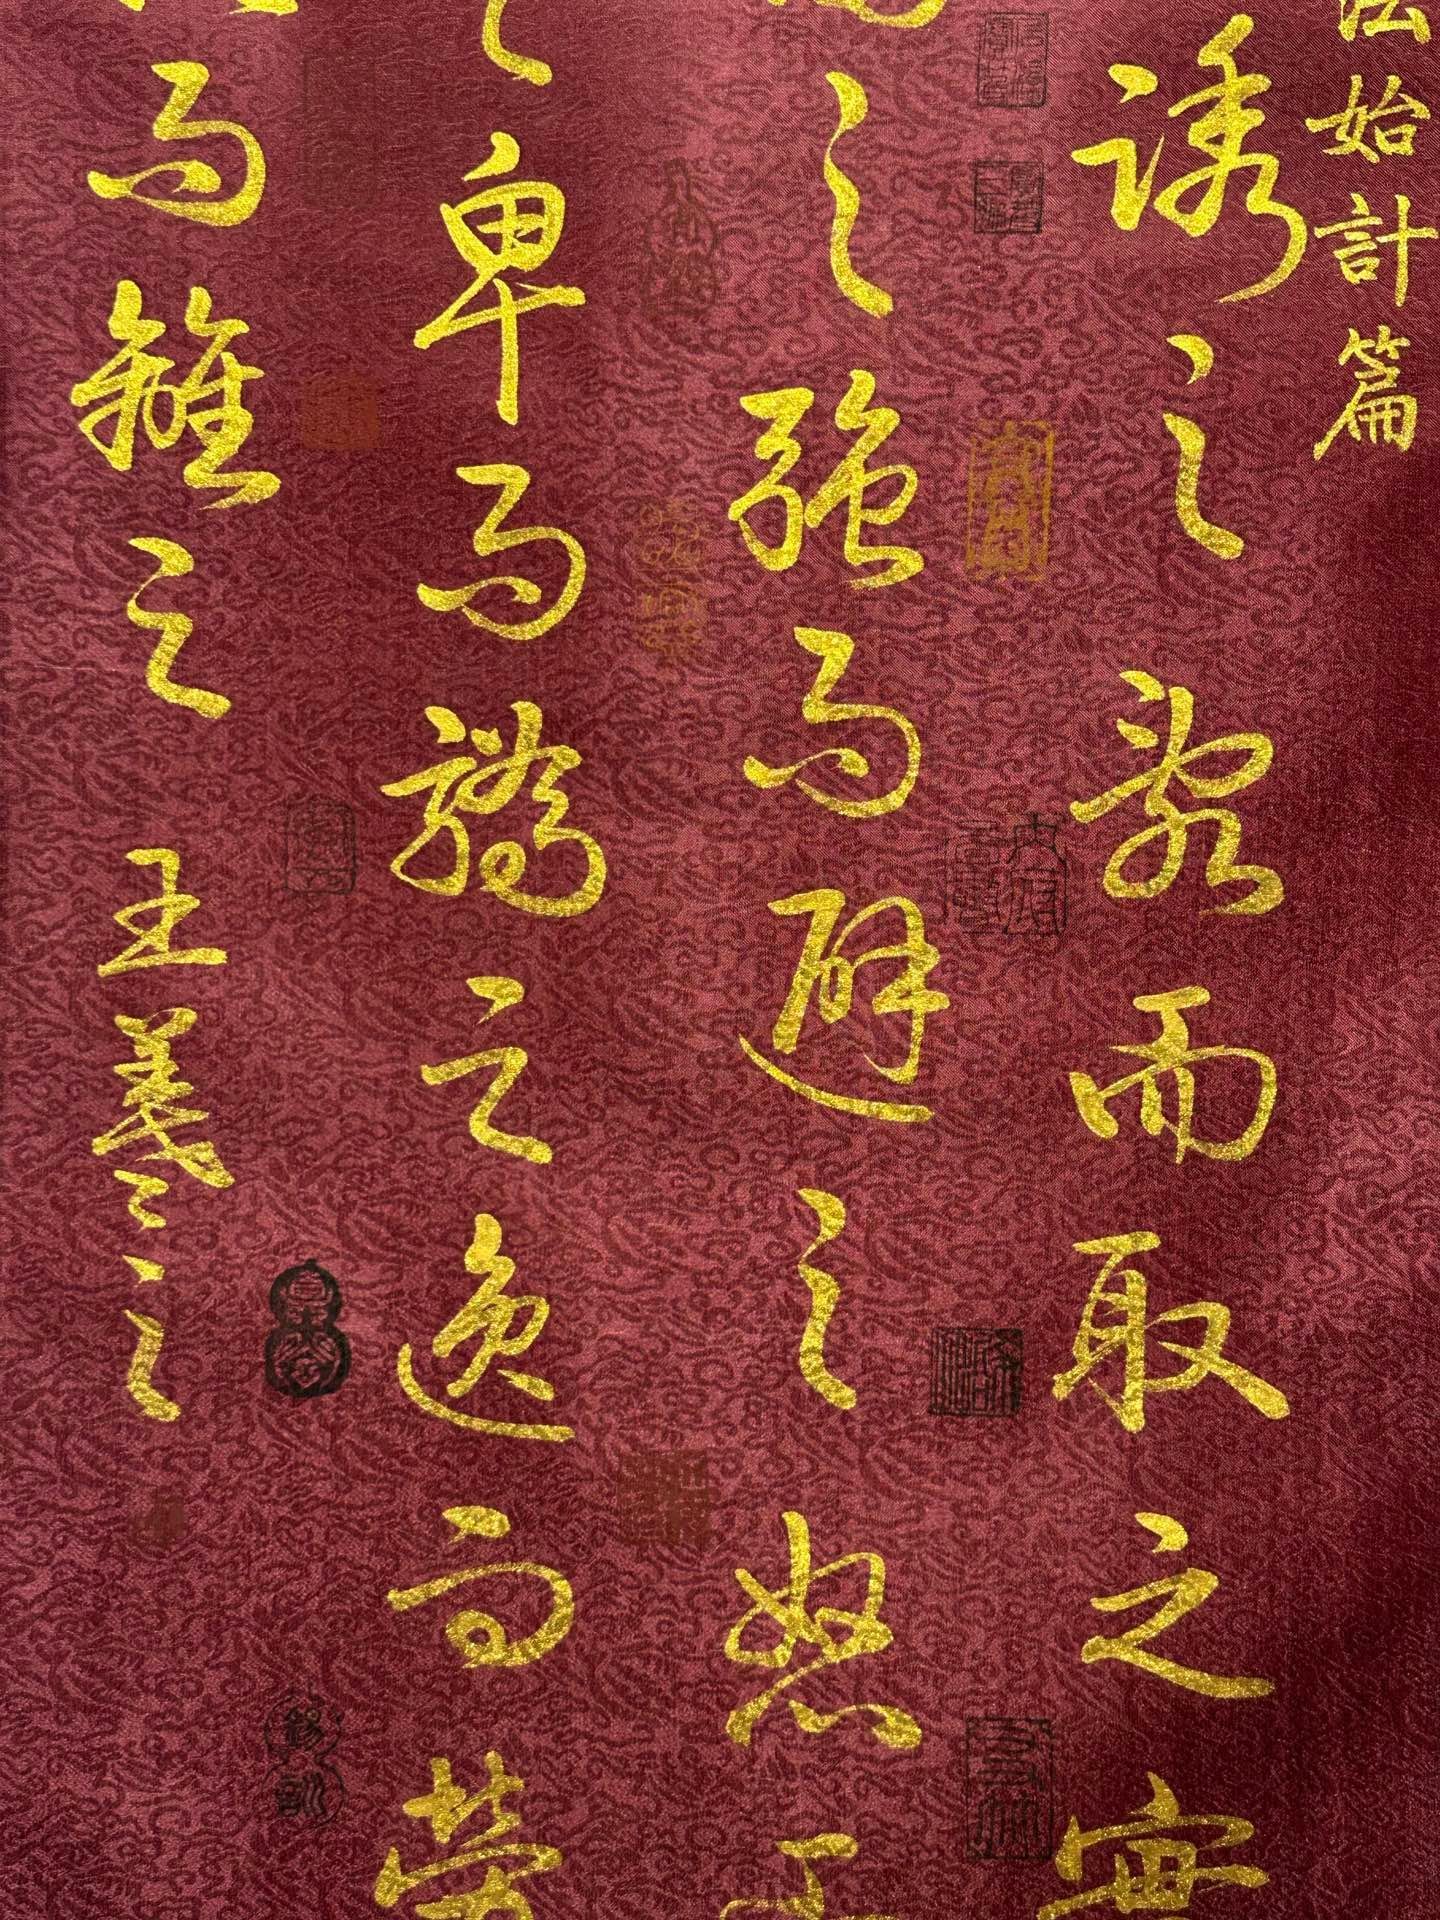 法始計篇
誘之亂而取之實
之強而避之怒而
之卑而驕之逸而勞
而離之 王羲之